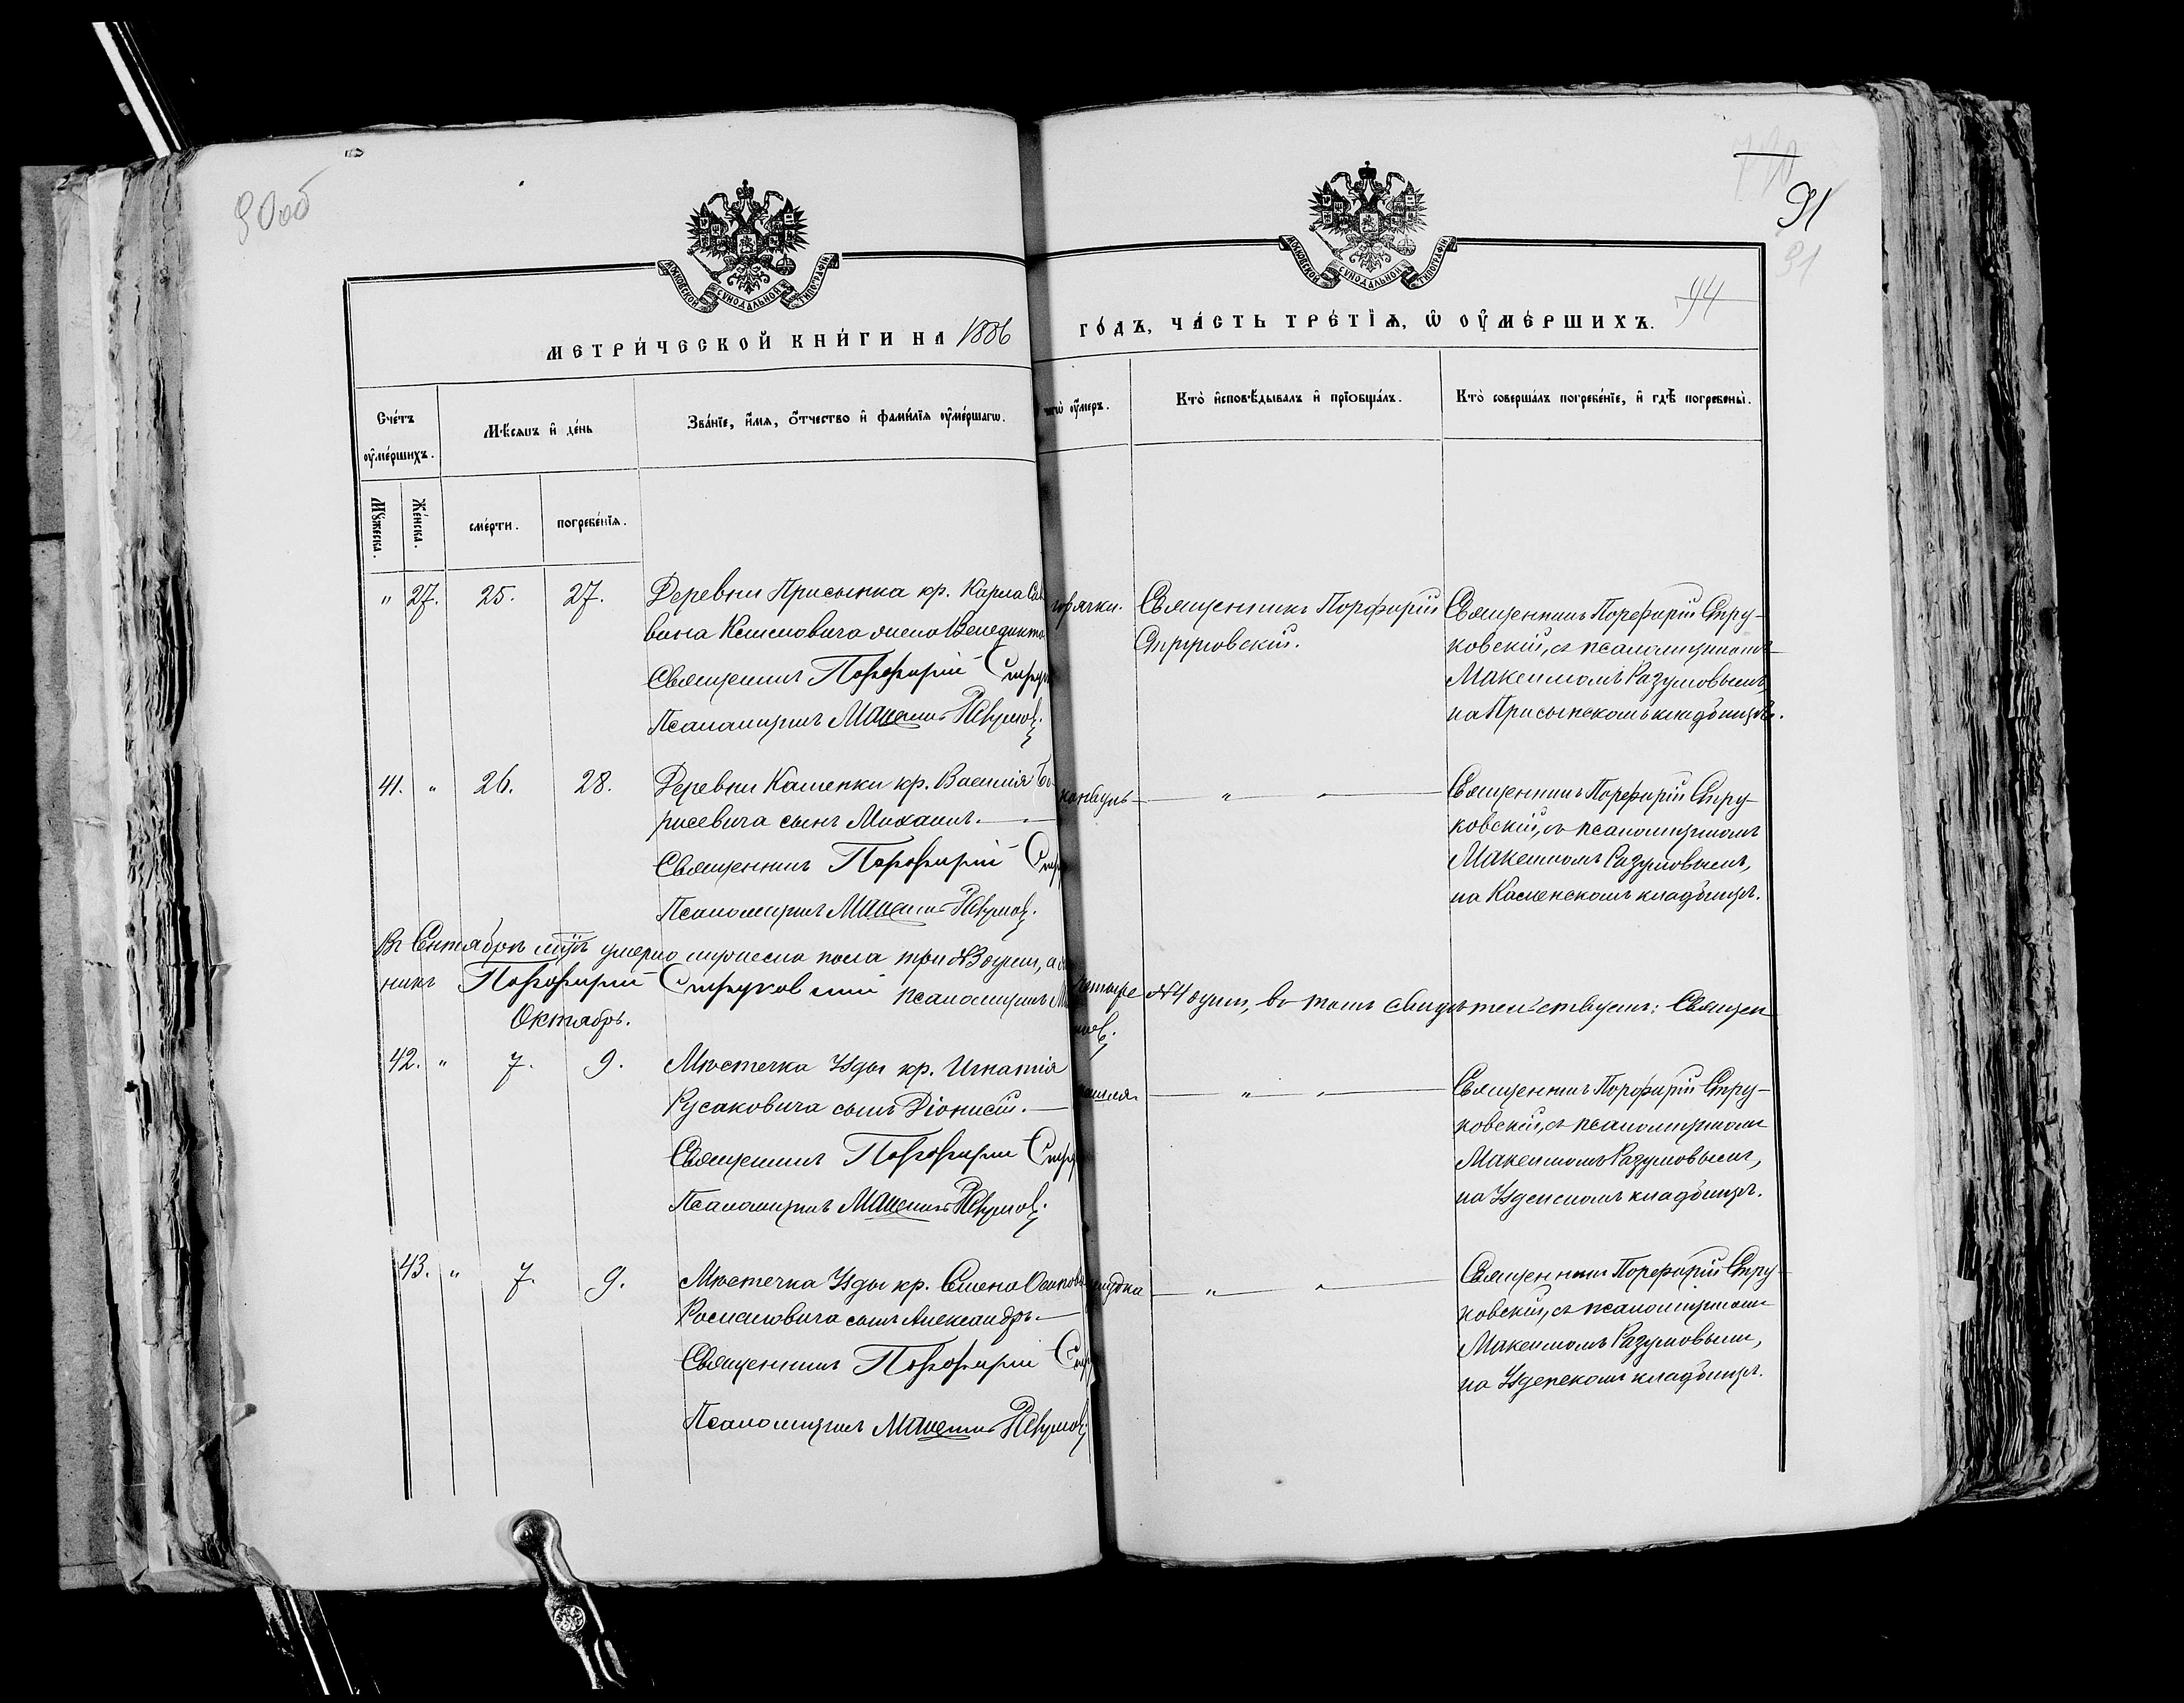 90об
91
91
94
МОСКОВСКОЙ СѴНОДАЛЬНОЙ ТИПОГРАФІИ
МОСКОВСКОЙ СѴНОДАЛЬНОЙ ТИПОГРАФІИ
МЕТРИ́ЧЕСКОЙ КНИ́ГИ НА 1886
ГО́ДЪ, ЧА́СТЬ ТРЕ́ТІѦ, Ѽ ОУ҆МЕ́РШИХЪ.
Сче́тъ оу҆ме́ршихъ.
Мꙋ́жеска.
Же́нска.
Мѣ́сѧцъ и҆ де́нь
сме́рти.
погребе́нїѧ.
Зва́нїе, и҆́мѧ, ѻ҆́тчество и҆ фами́лїѧ оу҆ме́ршагѡ.
чегѡ̀ оу҆́меръ.
Кто̀ и҆сповѣ́дывалъ и҆ прїѡбща́лъ.
Кто̀ соверша́лъ погребе́нїе, и҆ гдѣ̀ погребены̀.
" 27. 25. 27. Деревни Присынка кр. Карла
жена
Священникъ Порфирій
Псаломщикъ Максимъ Разумов.
горячки.
Священникъ Порфирій
Струковскій.
Священникъ Порфирій Стру-
ковскій, съ псаломщикомъ
Максимомъ Разумовымъ,
на Присынскомъ кладбищѣ.
41. " 26. 28. Деревни Каменки кр. Василія Бо-
рисевича сынъ Михаилъ.
Священникъ Порфирій
Псаломщикъ Максимъ Разумов.
" "
Священникъ Порфирій Стру-
ковскій, съ псаломщикомъ
Максимомъ Разумовымъ,
на Каменскомъ кладбищѣ.
Въ Сентябрѣ м-цѣ умерло мужеска пола три №3 души, а
четыре №4 души, въ томъ свидѣтельствуемъ: Священ-
никъ Порфирій Струковскій Псаломщикъ
Октябрь.
42. " 7. 9. Мѣстечка Узды кр. Игнатія
Русаковича сынъ Діонисій.
Священникъ Порфирій
Псаломщикъ Максимъ Разумов.
кашля.
" "
Священникъ Порфирій Стру-
ковскій, съ псаломщикомъ
Максимомъ Разумовымъ,
на Узденскомъ кладбищѣ.
43. " 7. 9. Мѣстечка Узды кр. Семена
сынъ Александръ.
Священникъ Порфирій
Псаломщикъ Максимъ Разумов.
" "
Священникъ Порфирій Стру-
ковскій, съ псаломщикомъ
Максимомъ Разумовымъ,
на Узденскомъ кладбищѣ.